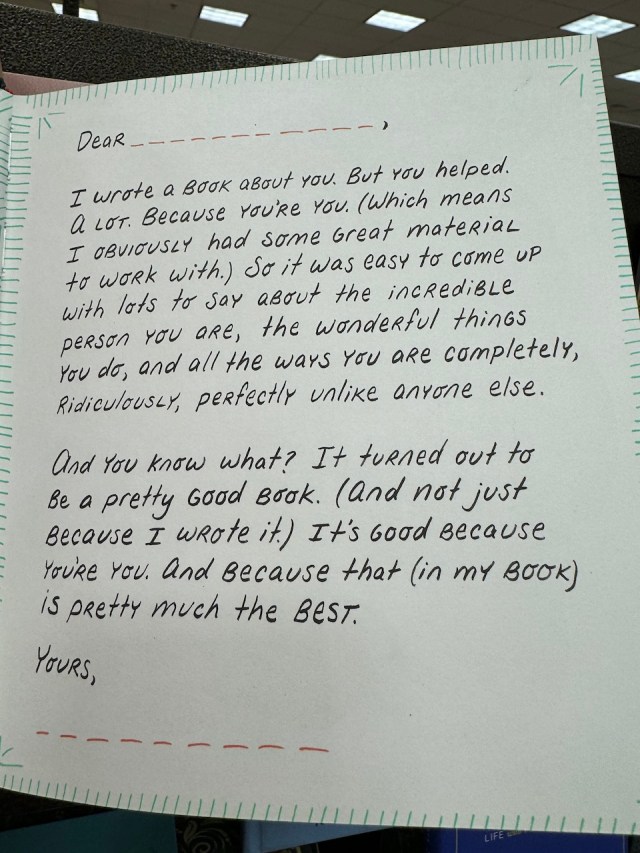 Dear ____________,
I wrote a Book about you. But you helped.
A lot. Because you're you. (Which means
I obviously had some great material
to work with.) So it was easy to come up
with lots to say about the incredible
person you are, the wonderful things
you do, and all the ways you are completely,
Ridiculously, perfectly unlike anyone else.
And you know what? It turned out to
Be a pretty Good Book. (And not just
Because I wrote it.) It's Good Because
You're you. And Because that (in my Book)
is pretty much the Best.
Yours,
_________
LIFE